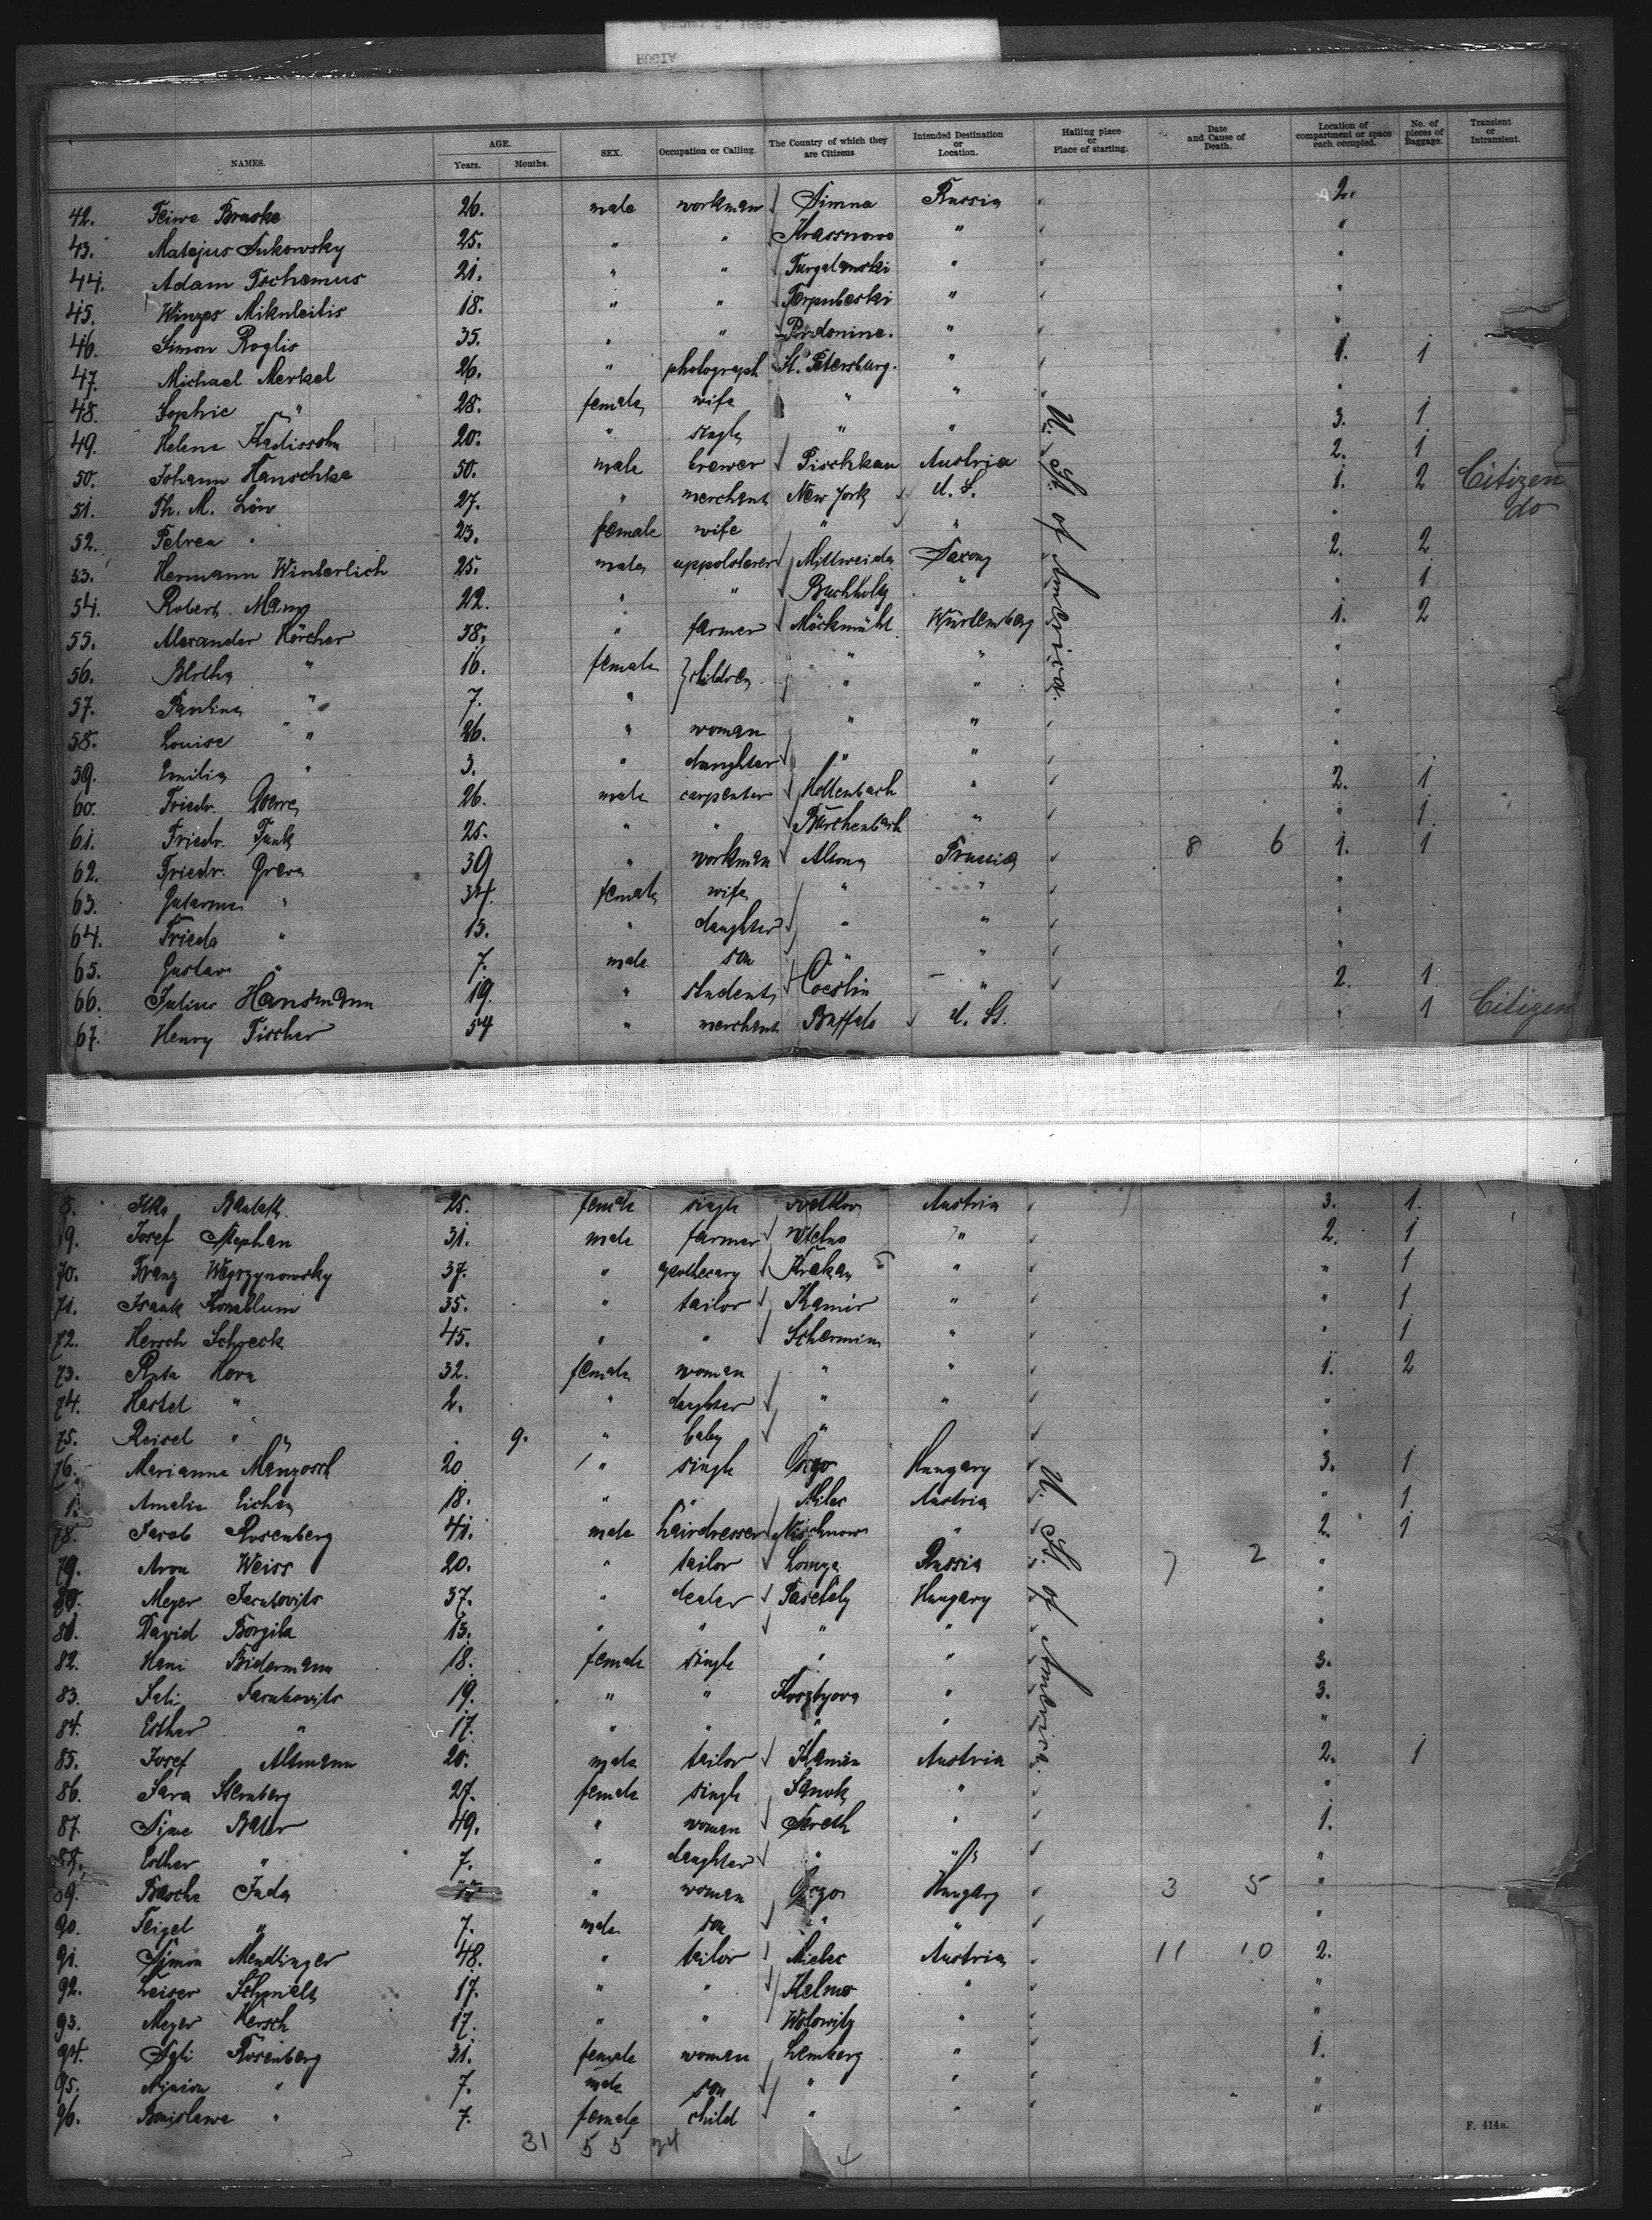 NAMES. AGE. Years. Months. SEX. Occupation or Calling. The Country of which they are Citizens Intended Destination or Location. Hailing place or Place of starting. Date and Cause of Death. Location of compartment or space each occupied. No. of pieces of Baggage. Transient or Intransient.
42. Feiwe Braske 26. male workman Simna Russia 2.
43. Matejus Sukowsky 25. " " Krassnowo " "
44. Adam Tschemus 21. " " " "
45. Winzes Mikuleitis 18. " " " "
46. Simon Roglis 35. " " Perdonine. " "
47. Michael Merkel 26. " photograph St. Petersburg. " 1. 1
48. Sophie " 28. female wife " " "
49. Helene Kadissohn 20. " single " " 3. 1
50. Johann Hanschke 50. male brewer Pischkau Austria 2. 1
51. Th. M. Löw 27. " merchant New York U. S. 1. 2 Citizen
52. " 23. female wife " " " do
53. Hermann Winterlich 25. male uppolsterer Mittweida Saxony 2. 2
54. Robert Many 22. " " Buchholz " " 1
55. Alexander Hörcher 58. " farmer Möckmühl Würtemberg 1. 2
56. " 16. female children " " "
57. Paulina " 7. " " " "
58. Louise " 26. " woman " " "
59. Emilia " 3. " daughter " " "
60. Friedr. 26. male carpenter Hollenbach " 2. 1
61. Friedr. Funk 25. " " " " 1.
62. Friedr. Greve 39 " workman Altona Prussia 8 6 1. 1
63. " 34. female wife " " "
64. Frieda " 15. " daughter " " "
65. Gustav " 7. male son " " "
66. Julius Hansmann 19. " student Coeslin " 2. 1
67. Henry Fischer 54 " merchant Buffalo U. St. " 1 Citizen
U. St. of America.
8. 25. female single Austria 3. 1.
9. Josef Stephan 31. male farmer " 2. 1
70. Franz Wegrzynowsky 37. " apothecary Krakau " " 1
71. Isaak Kornblum 35. " tailor Kamir " " 1
72. Hersch Schreck 45. " " " " 1
73. Horn 32. female woman " " 1. 2
74. Hertel " 2. " daughter " " "
75. Reisel " 9. " baby " "
76. Marianne Manzosch 20 " single Hungary 3. 1
1. Amalie Eichen 18. " " Milec Austria " 1
78. Jacob Rosenberg 41. male hairdresser Nischnow " 2. 1
79. Aron Weiss 20. " tailor Lomza Russia 7 2 "
80. Meyer Jacubovits 37. " dealer Hungary "
81. David 15. " " " " "
82. Hani Bidermann 18. female single " " 3.
83. Sali Jacubovits 19. " " " 3.
84. Esther " 17. " " " " "
85. Josef Altmann 20. male tailor Austria 2. 1
86. Sara Sternberg 27. female single Sanok " "
87. 49. " woman Sereth " 1.
88. Esther " 7. " daughter " " "
89. Basche Juda " woman Hungary 3 5 "
90. Feigel " 7. male son " " "
91. Simon Mendlinger 48. " tailor Mielec Austria 11 10 2.
92. Leiser 17. " " Kelmo " "
93. Meyer Hersch 17. " " " "
94. Rosenberg 31. female woman Lemberg " 1.
95. " 7. male son " " "
96. Bonislawa " 7. female child " " "
U. St. of America.
31 55 24
F. 414a.